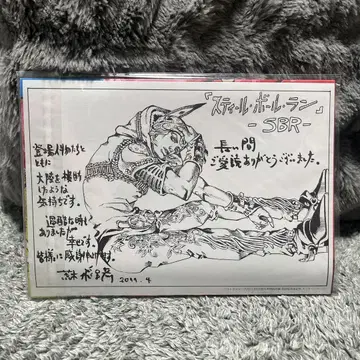 『スティール・ボール・ラン』
-SBR-
長い間
ご愛読ありがとうございました。
登場人物たちと
ともに
大陸を横断
したような
気持ちです。
過酷な時も
ありましたが
幸せです。
皆様に感謝
荒木飛呂彦
2011.4